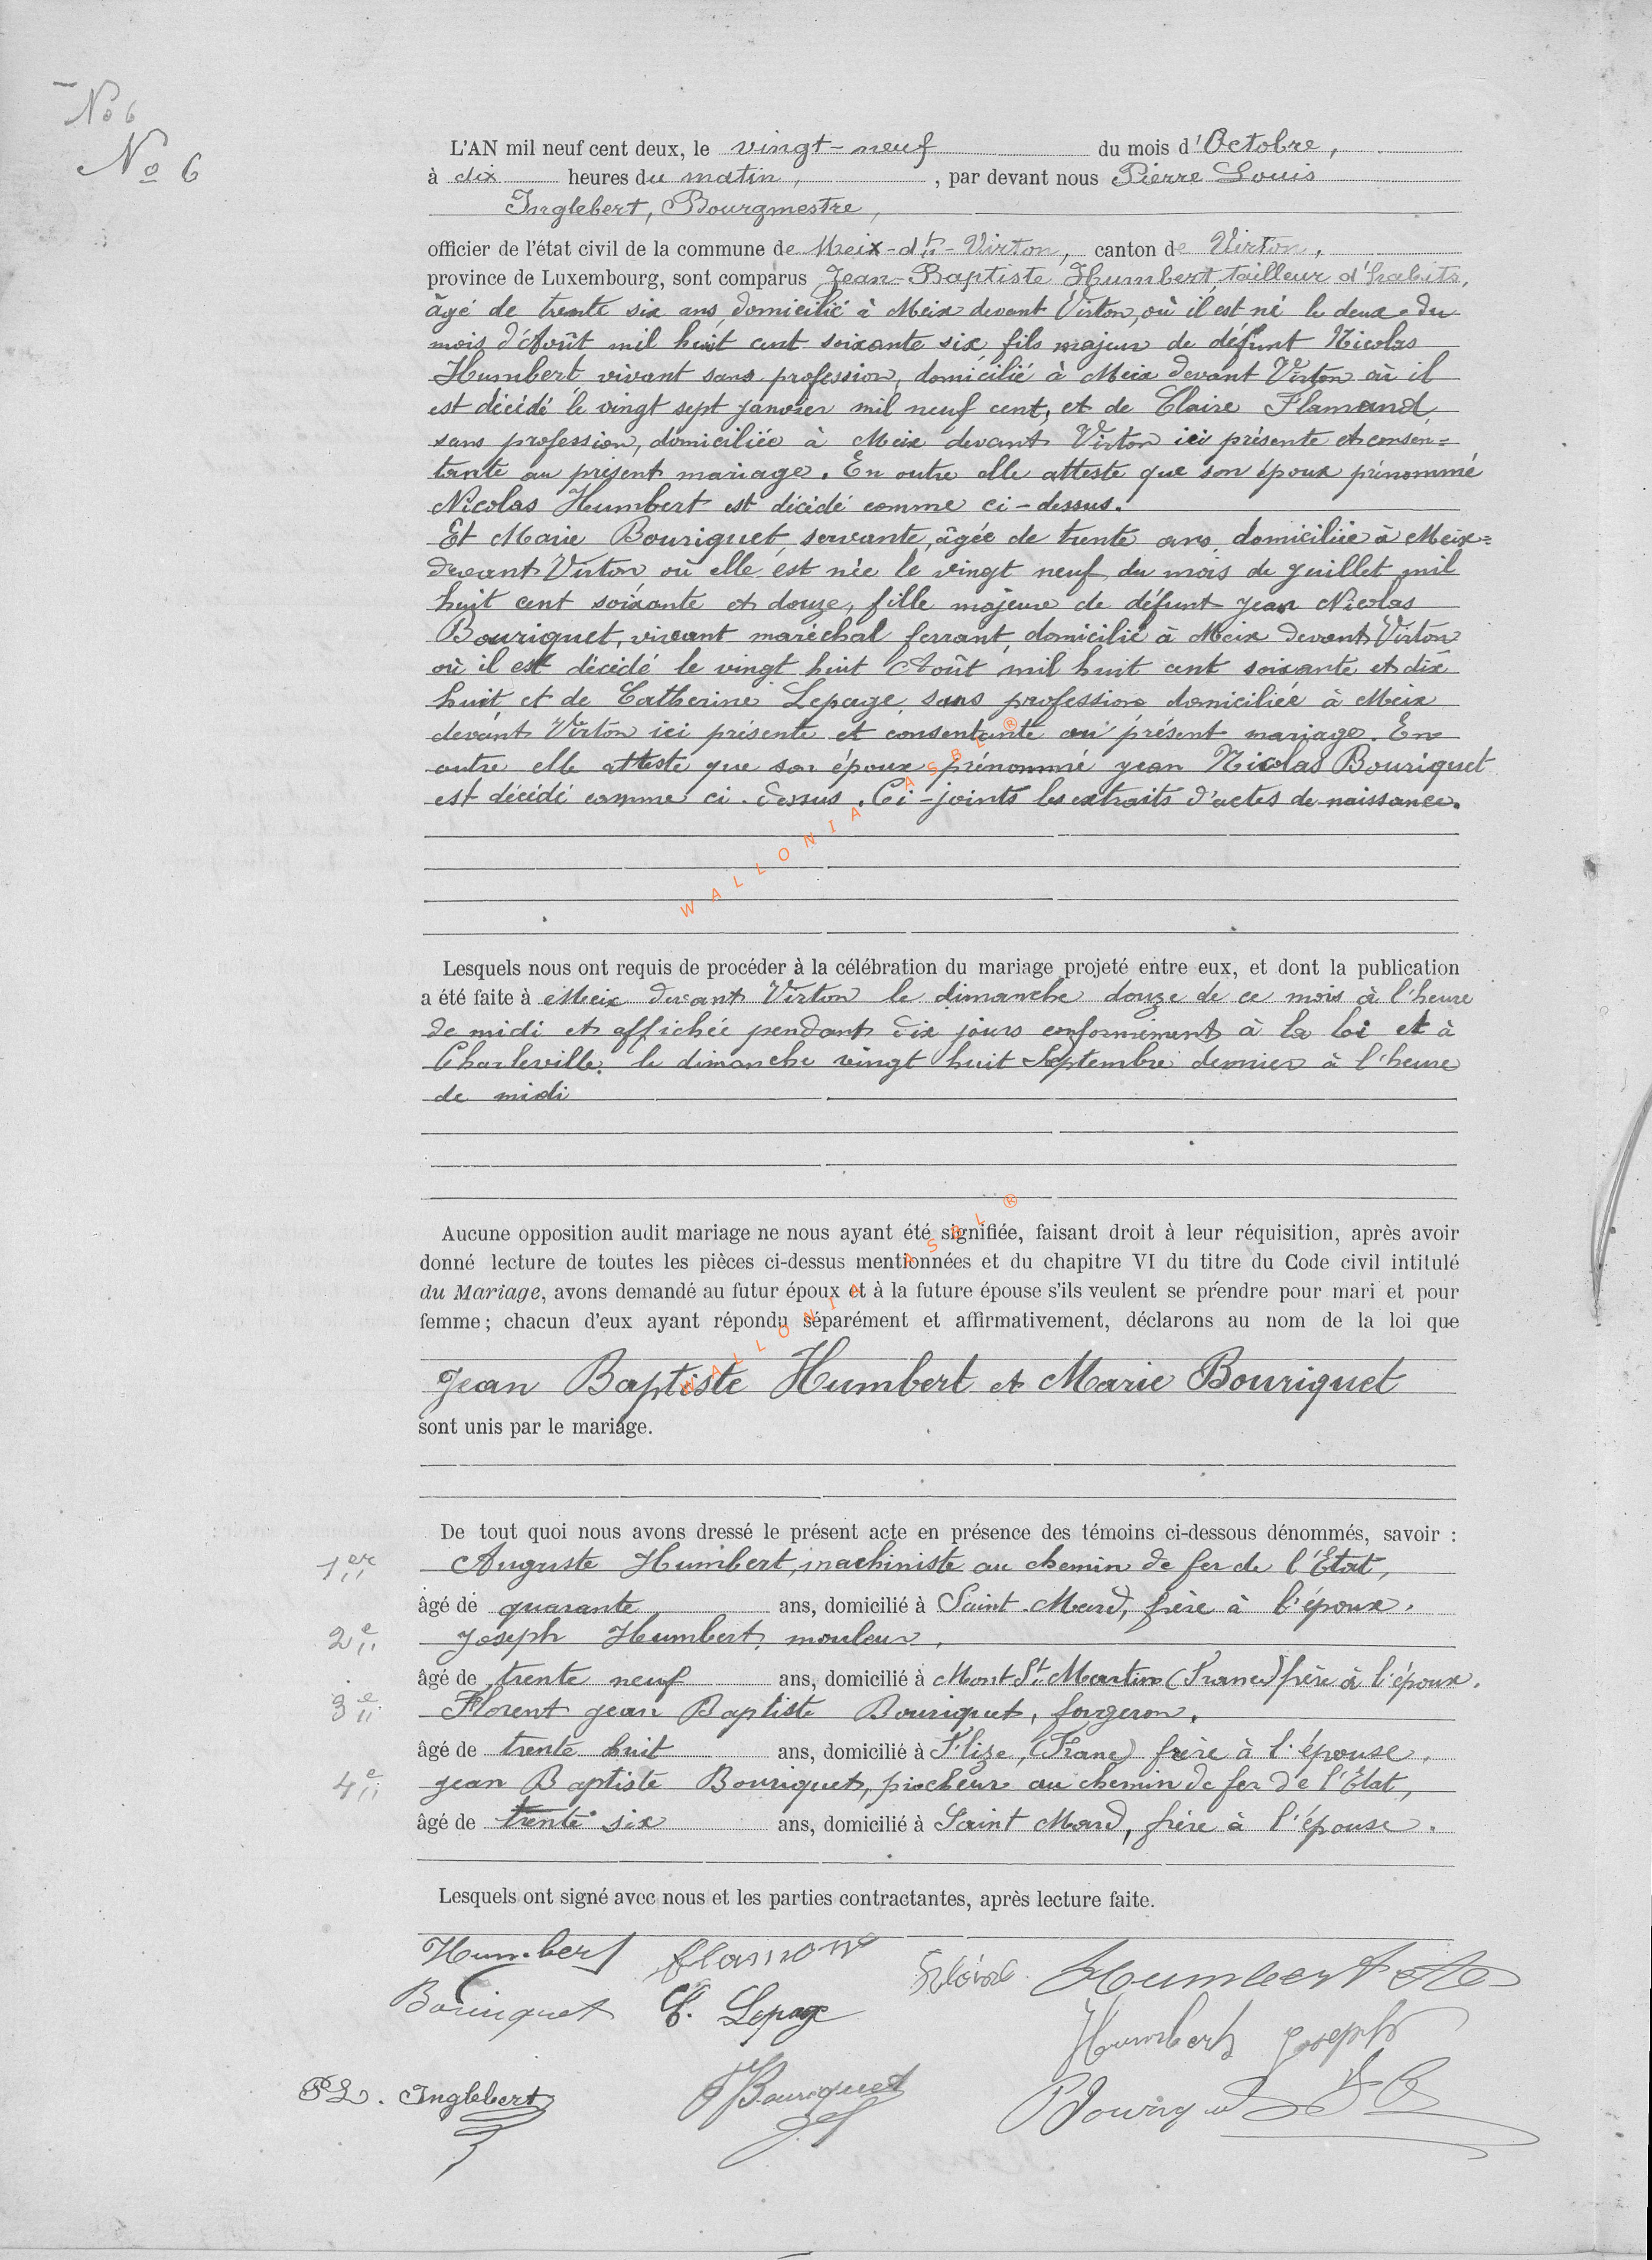 No 6
No 6
L'AN mil neuf cent deux, le vingt-neuf du mois d'Octobre,
à dix heures du matin, , par devant nous Pierre Louis
Inglebert, Bourgmestre,
officier de l'état civil de la commune de Meix-dt-Virton, canton de Virton,
province de Luxembourg, sont comparus Jean-Baptiste Humbert, tailleur d'habits,
âgé de trente six ans, domicilié à Meix devant Virton, où il est né le deux du
mois d'Août mil huit cent soixante six, fils majeur de défunt Nicolas
Humbert vivant sans profession, domicilié à Meix devant Virton où il
est décédé le vingt sept janvier mil neuf cent, et de Claire Flamand
sans profession, domiciliée à Meix devant Virton ici présente et consen=
tante au présent mariage. En outre elle atteste que son époux prénommé
Nicolas Humbert est décédé comme ci-dessus.
Et Marie Bouriquet, servante, âgée de trente ans, domiciliée à Meix=
devant Virton où elle est née le vingt neuf du mois de juillet mil
huit cent soixante et douze, fille majeure de défunt Jean Nicolas
Bouriquet, vivant maréchal ferrant, domicilié à Meix devant Virton
où il est décédé le vingt huit Août mil huit cent soixante et dix
huit et de Catherine Lepage, sans profession domiciliée à Meix
devant Virton ici présente et consentante au présent mariage. En
outre elle atteste que son époux prénommé jean Nicolas Bouriquet
est décédé comme ci-dessus. Ci-joints les extraits d'actes de naissance.
WALLONIA ASBL ®
Lesquels nous ont requis de procéder à la célébration du mariage projeté entre eux, et dont la publication
a été faite à Meix devant Virton le dimanche douze de ce mois à l'heure
de midi et affichée pendant dix jours conformément à la loi et à
Charleville, le dimanche vingt huit Septembre dernier à l'heure
de midi
Aucune opposition audit mariage ne nous ayant été signifiée, faisant droit à leur réquisition, après avoir
donné lecture de toutes les pièces ci-dessus mentionnées et du chapitre VI du titre du Code civil intitulé
du Mariage, avons demandé au futur époux et à la future épouse s'ils veulent se prendre pour mari et pour
femme; chacun d'eux ayant répondu séparément et affirmativement, déclarons au nom de la loi que
WALLONIA ASBL ®
Jean Baptiste Humbert et Marie Bouriquet
sont unis par le mariage.
De tout quoi nous avons dressé le présent acte en présence des témoins ci-dessous dénommés, savoir :
1er Auguste Humbert, machiniste au chemin de fer de l'Etat,
âgé de quarante ans, domicilié à Saint-Mard, frère à l'époux.
2e Joseph Humbert, mouleur,
âgé de trente neuf ans, domicilié à Mont St Martin (France) frère à l'époux.
3e Florent jean Baptiste Bouriquet, forgeron,
âgé de trente huit ans, domicilié à Flize, (Franc) frère à l'épouse.
4e jean Baptiste Bouriquet, piocheur au chemin de fer de l'Etat,
âgé de trente six ans, domicilié à Saint Mard, frère à l'épouse.
Lesquels ont signé avec nous et les parties contractantes, après lecture faite.
Humbert Humbert
Bouriquet C. Lepage
Humbert Joseph
PL. Inglebert Bouriquet